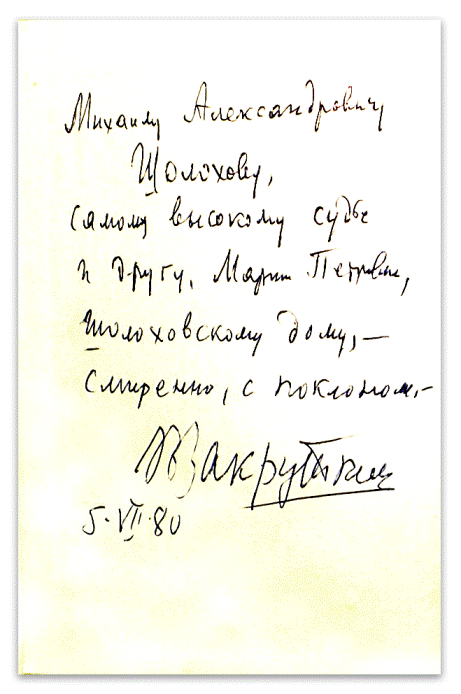 Михаилу Александровичу
Шолохову,
самому высокому судье
и другу, Марии Петровне,
Шолоховскому дому, —
Смиренно, с поклоном, —
ВЗакруткин
5.VII.80